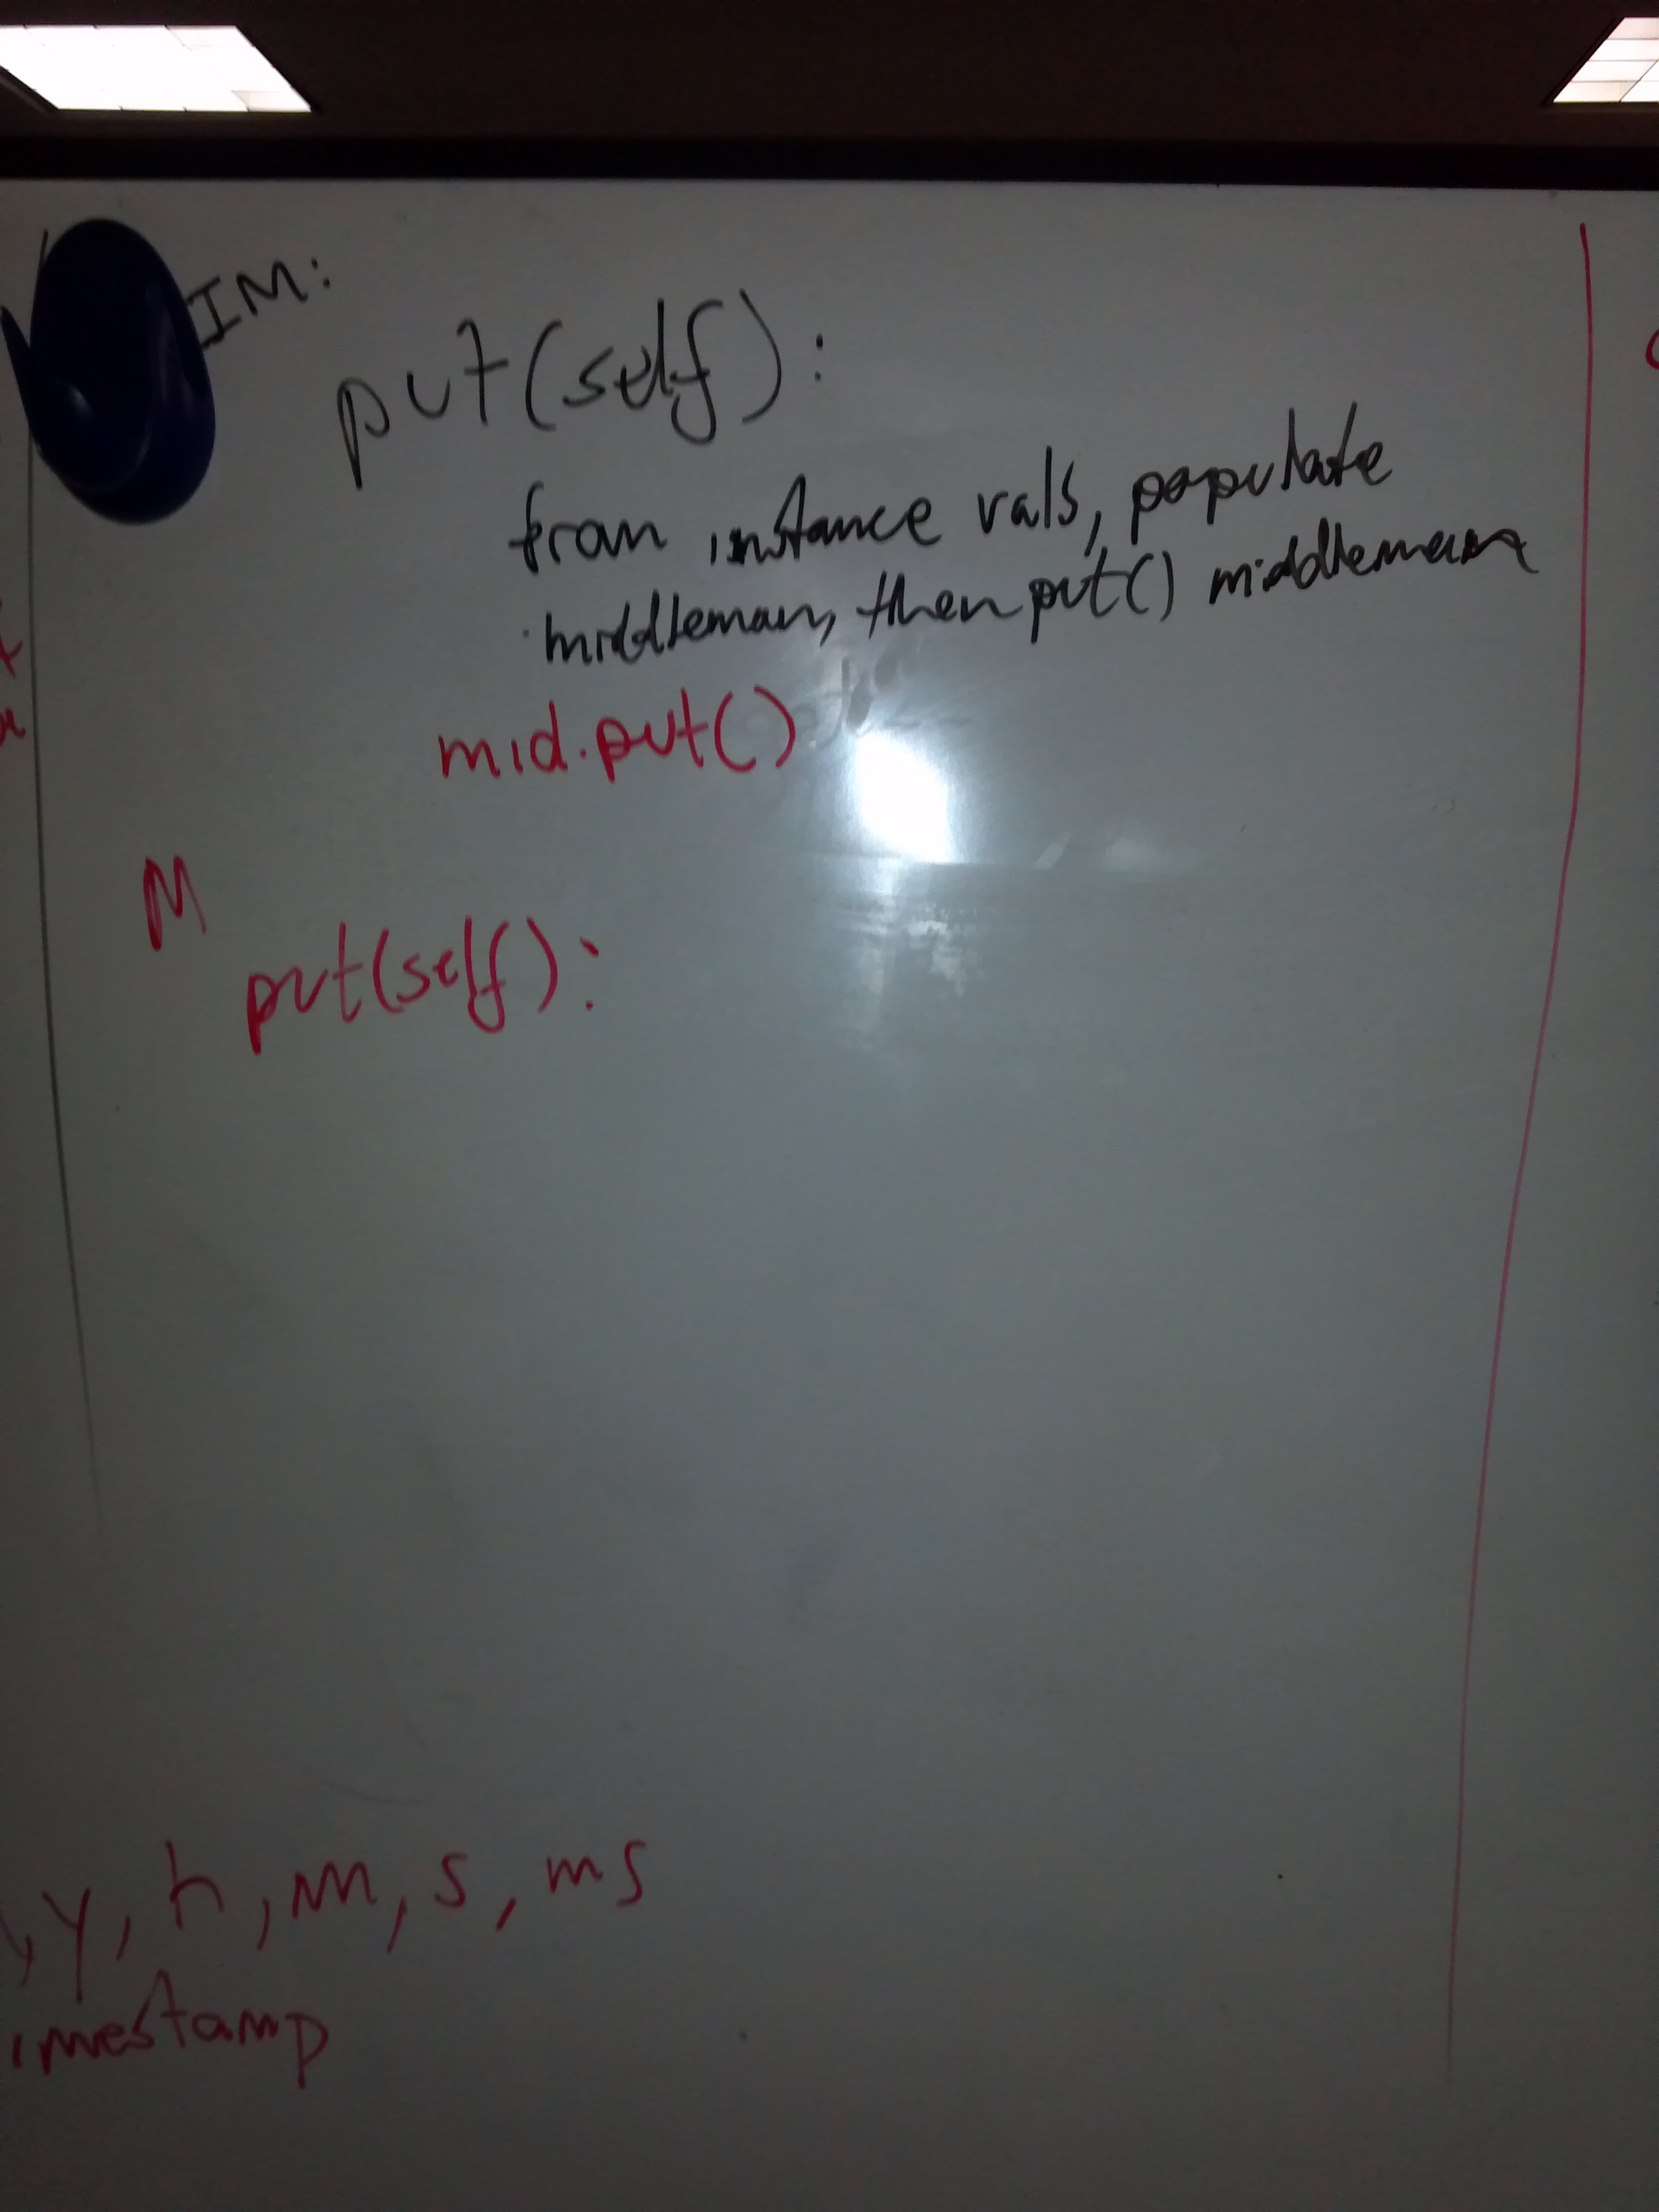 IM:
put(self):
from instance vals, populate
middleman, then put() middleman
mid.put()
M
put(self):
, y, h, m, s, ms
imestamp